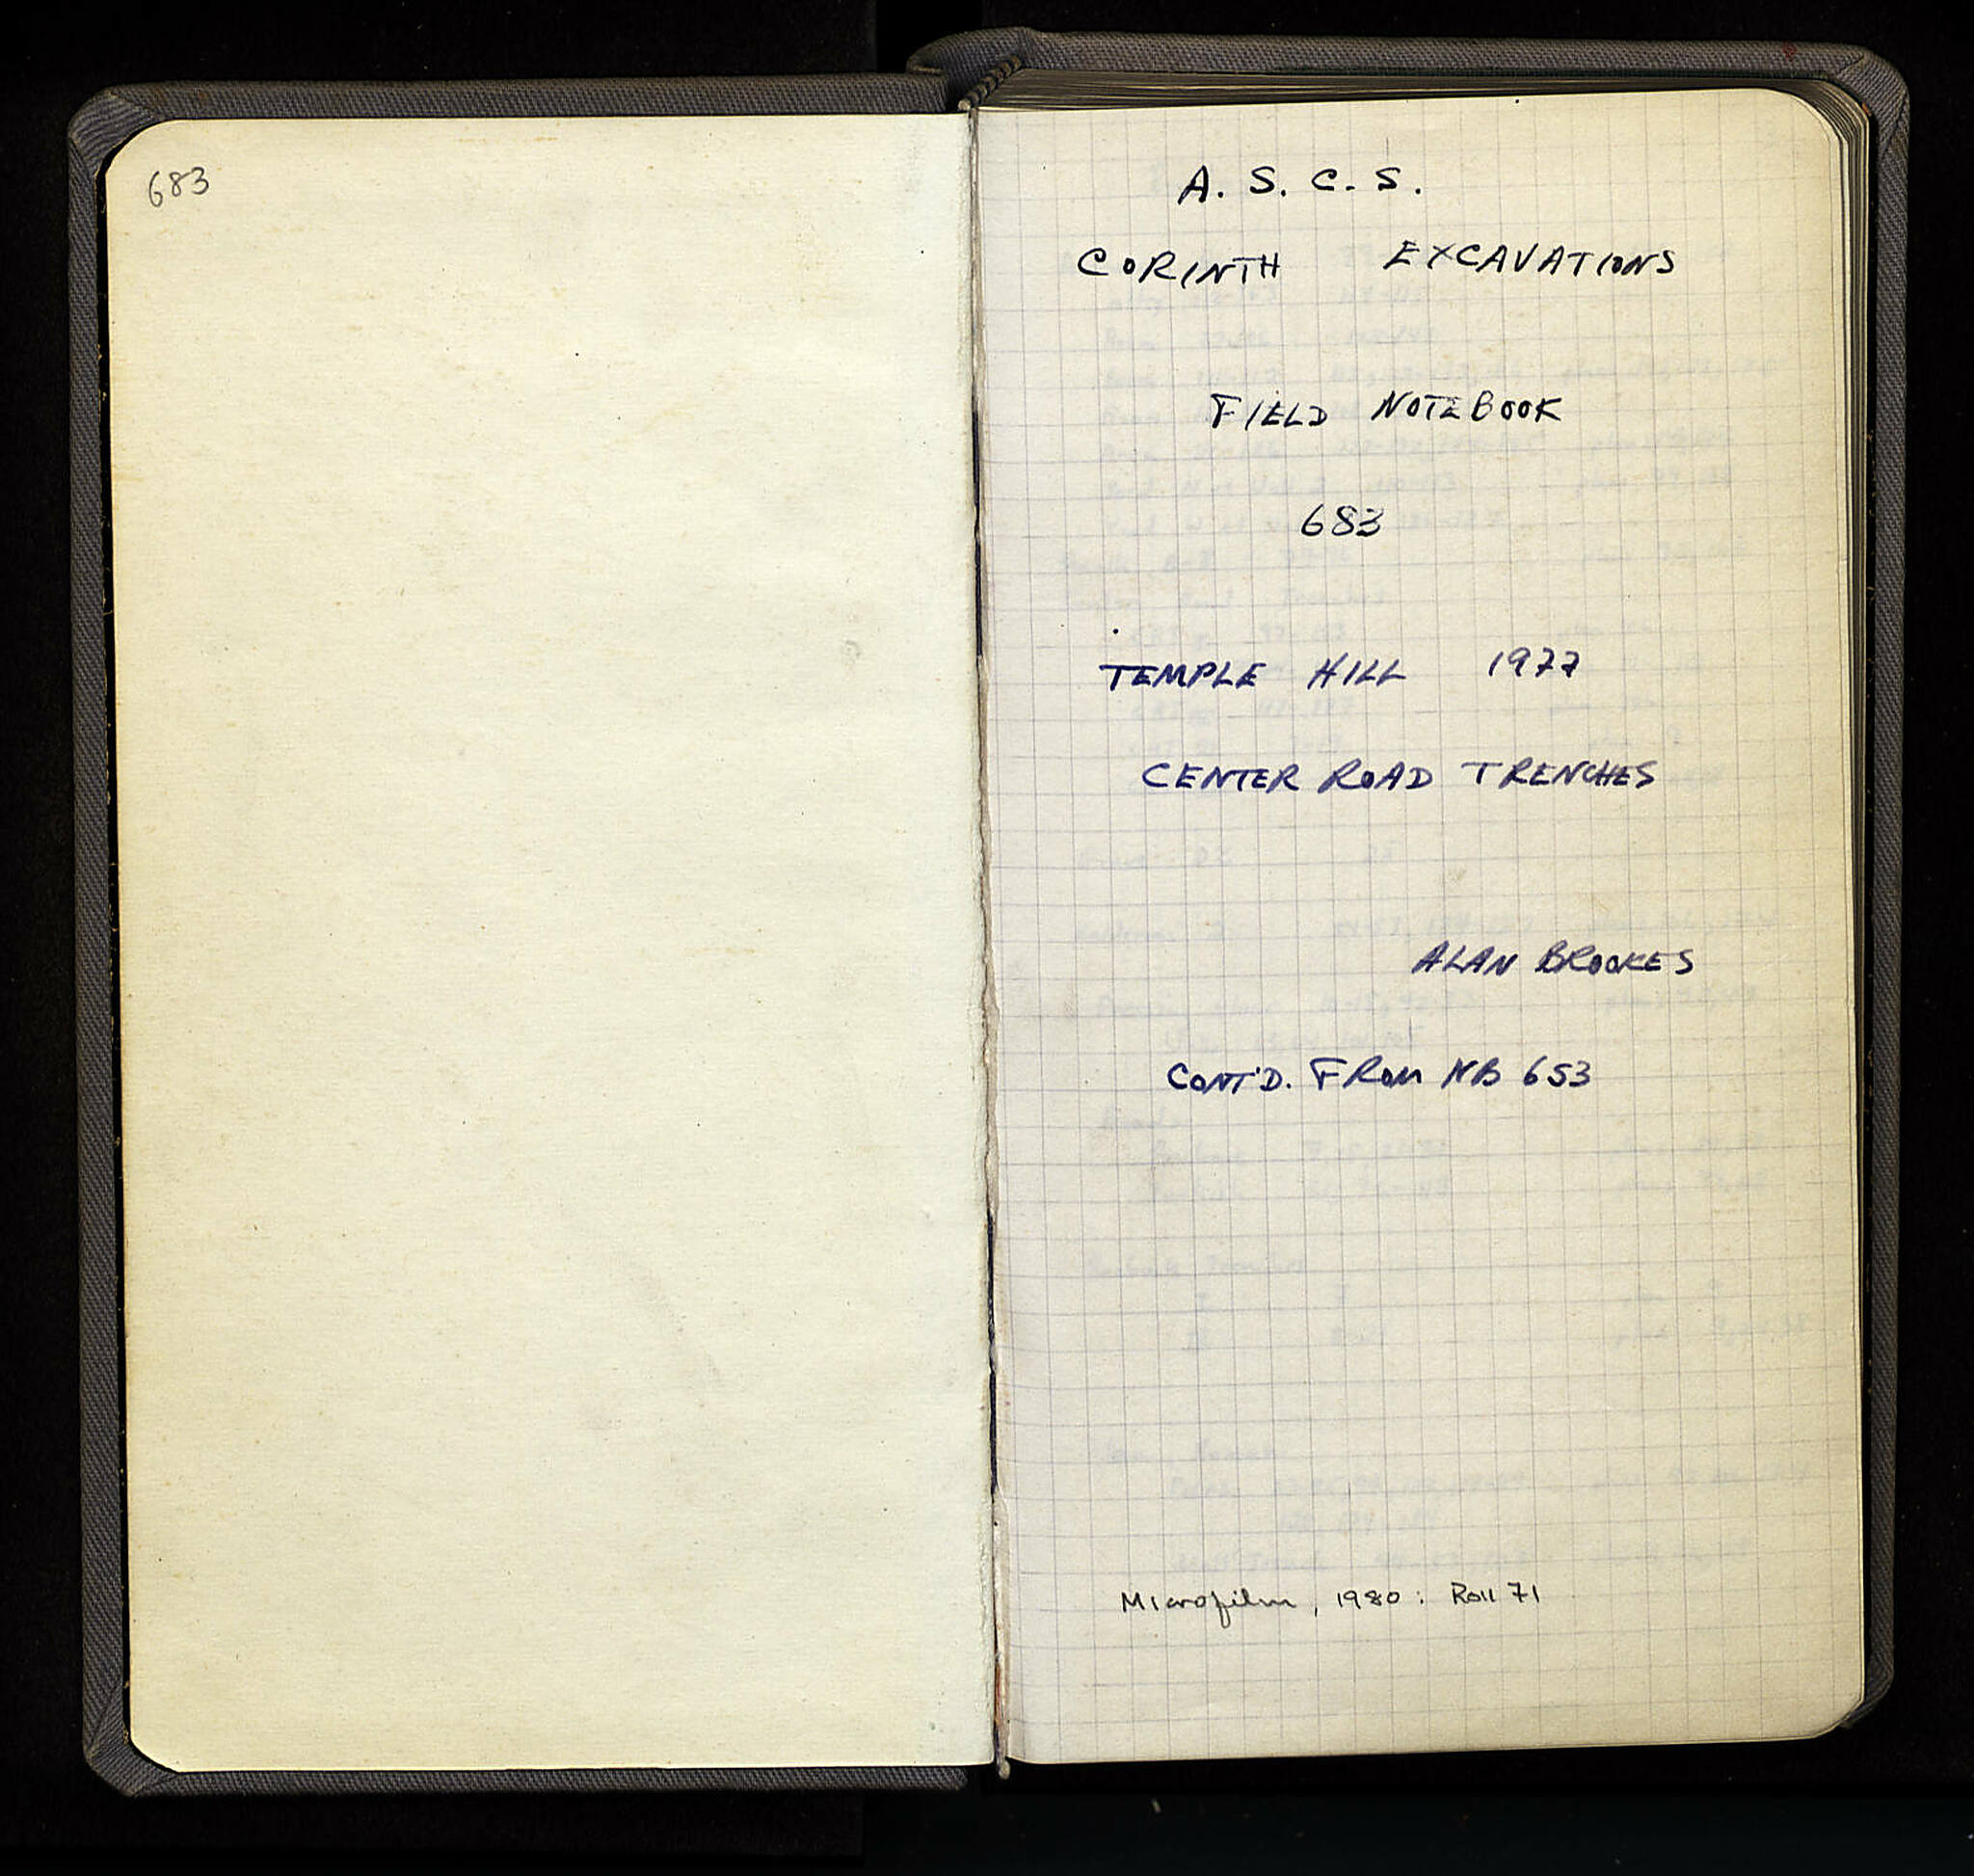 683
A. S. C. S.
CORINTH EXCAVATIONS
FIELD NOTEBOOK
683
TEMPLE HILL 1977
CENTER ROAD TRENCHES
ALAN BROOKES
CONT'D. FROM NB 653
Microfilm, 1980: Roll 71